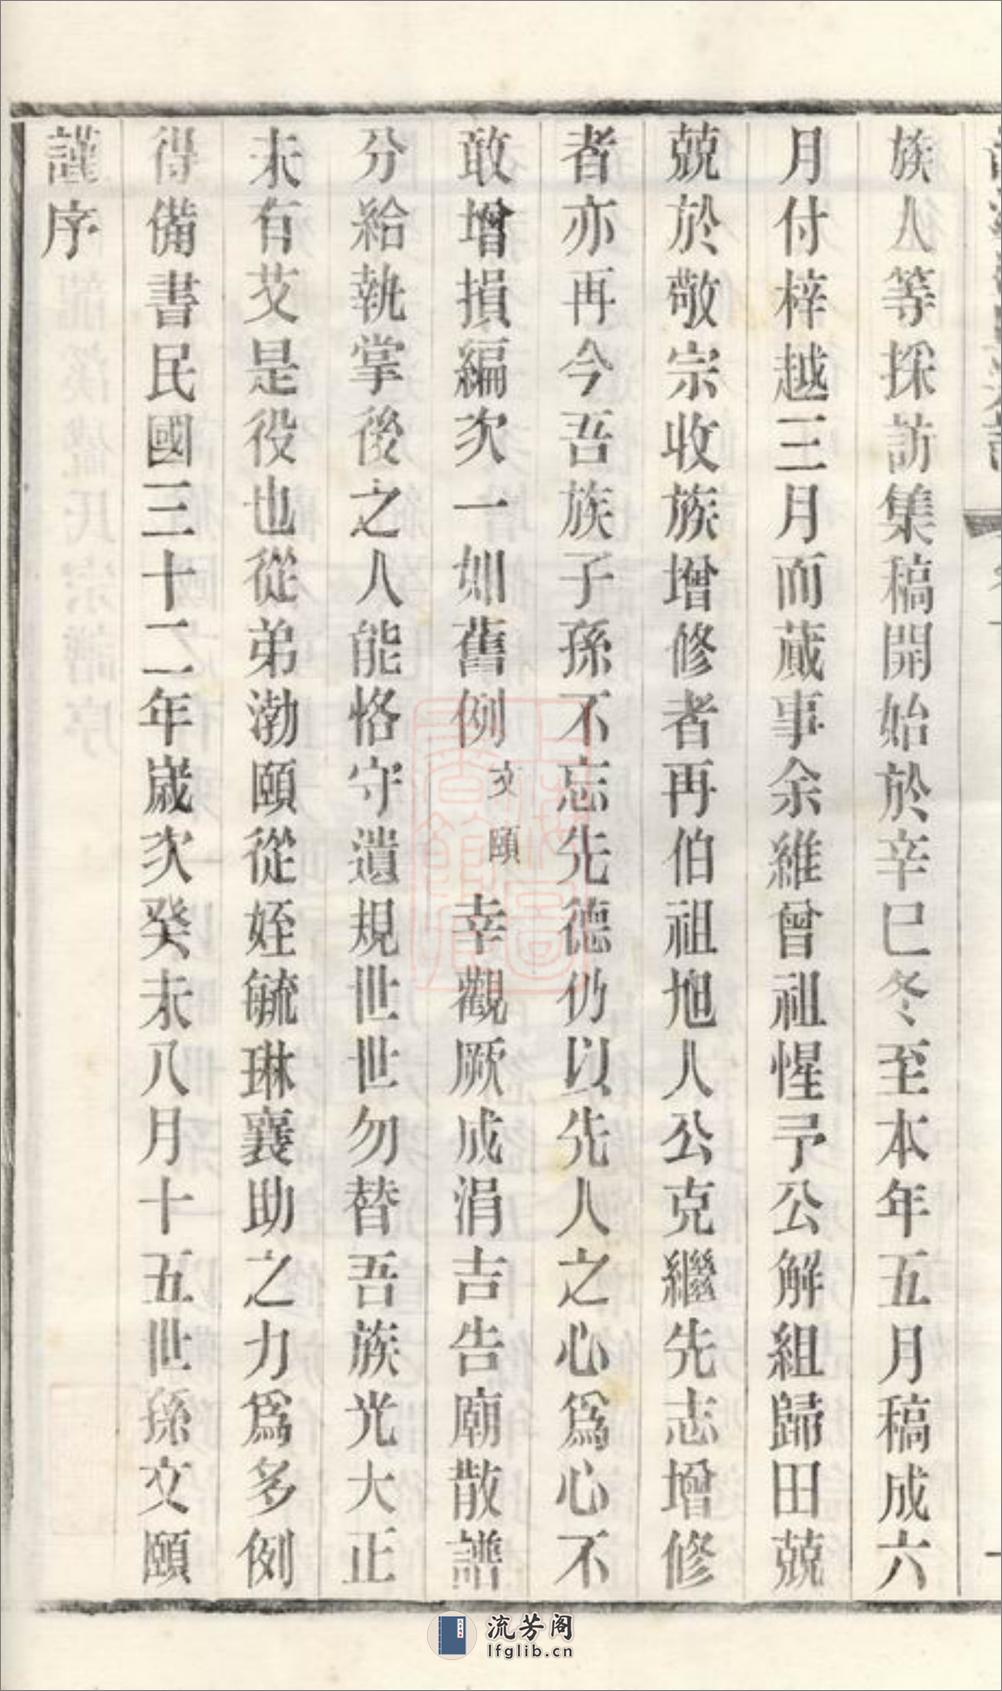 族人等採訪集稿開始於辛巳冬至本年五月稿成六
月付梓越三月而蕆事余維曾祖惺予公解組歸田兢
兢於敬宗收族增修者再伯祖旭人公克繼先志增修
者亦再今吾族子孫不忘先德仍以先人之心爲心不
敢增損編次一如舊例文頤幸觀厥成涓吉告廟散譜
分給執掌後之人能恪守遺規世世勿替吾族光大正
未有艾是役也從弟渤頤從姪毓琳襄助之力爲多例
得備書民國三十二年歲次癸未八月十五世孫文頤
謹序
流芳阁
lfglib.cn